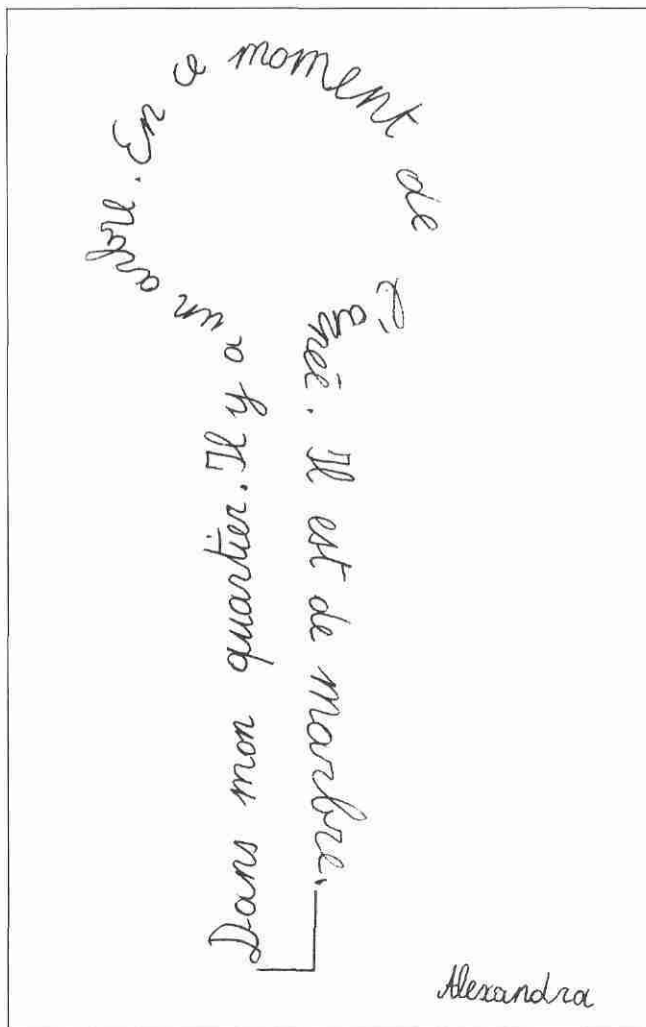 Dans mon quartier. Il y a un arbre. En ce moment de l'année. Il est de marbre.
Alexandra